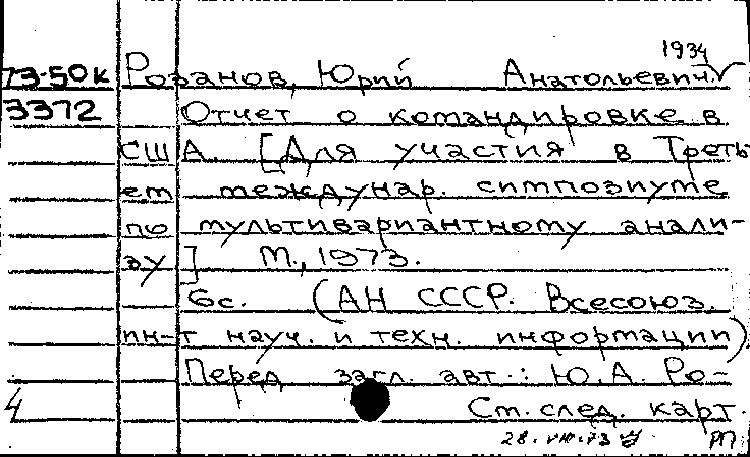 1934
73-50к Розанов, Юрий Анатольевич.
3372 Отчет о командировке в
США. [Для участия в Треть-
ем междунар. симпозиуме
по мультивариантному анали-
зу] М., 1973.
6с. (АН СССР. Всесоюз.
ин-т науч. и техн. информации)
Перед загл. авт.: Ю.А. Ро-
4 См. след. карт.
28.VIII.73 РП